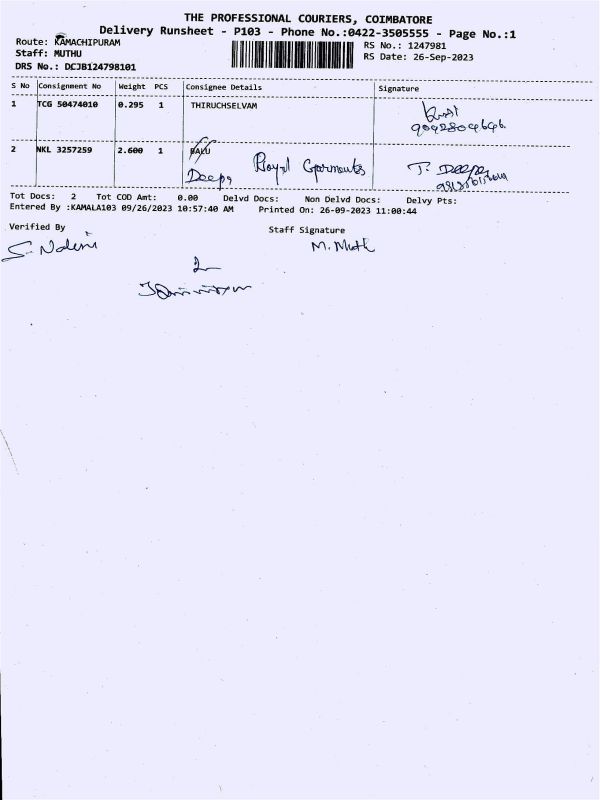 THE PROFESSIONAL COURIERS, COIMBATORE
Delivery Runsheet - P103 - Phone No.:0422-3505555 - Page No.:1
Route: KAMACHIPURAM
RS No.: 1247981
Staff: MUTHU
RS Date: 26-Sep-2023
DRS No.: DCJB124798101
S No Consignment No Weight PCS Consignee Details Signature
1 TCG 50474010 0.295 1 THIRUCHSELVAM
2 NKL 3257259 2.600 1 BALU
Deepa Royal Garments T. Deepa
Tot Docs: 2 Tot COD Amt: 0.00 Delvd Docs: Non Delvd Docs: Delvy Pts:
Entered By :KAMALA103 09/26/2023 10:57:40 AM Printed On: 26-09-2023 11:00:44
Verified By Staff Signature
S. Nalini M. Muth